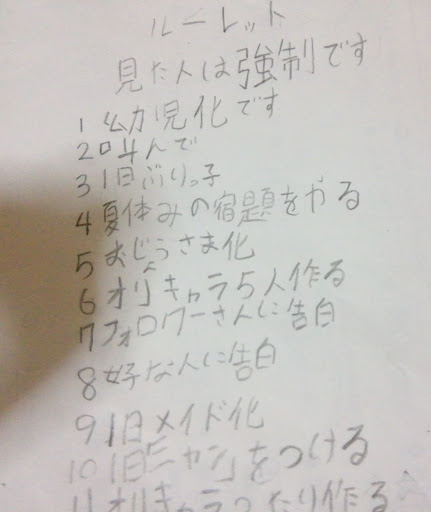 ルーレット
見た人は強制です
1 幼児化です
2 叫んで
3 1日ぶりっ子
4 夏休みの宿題をやる
5 おじょうさま化
6 オリキャラ5人作る
7 フォロワーさんに告白
8 好な人に告白
9 1日メイド化
10 1日ニャンをつける
11 オリキャラ2たり作る